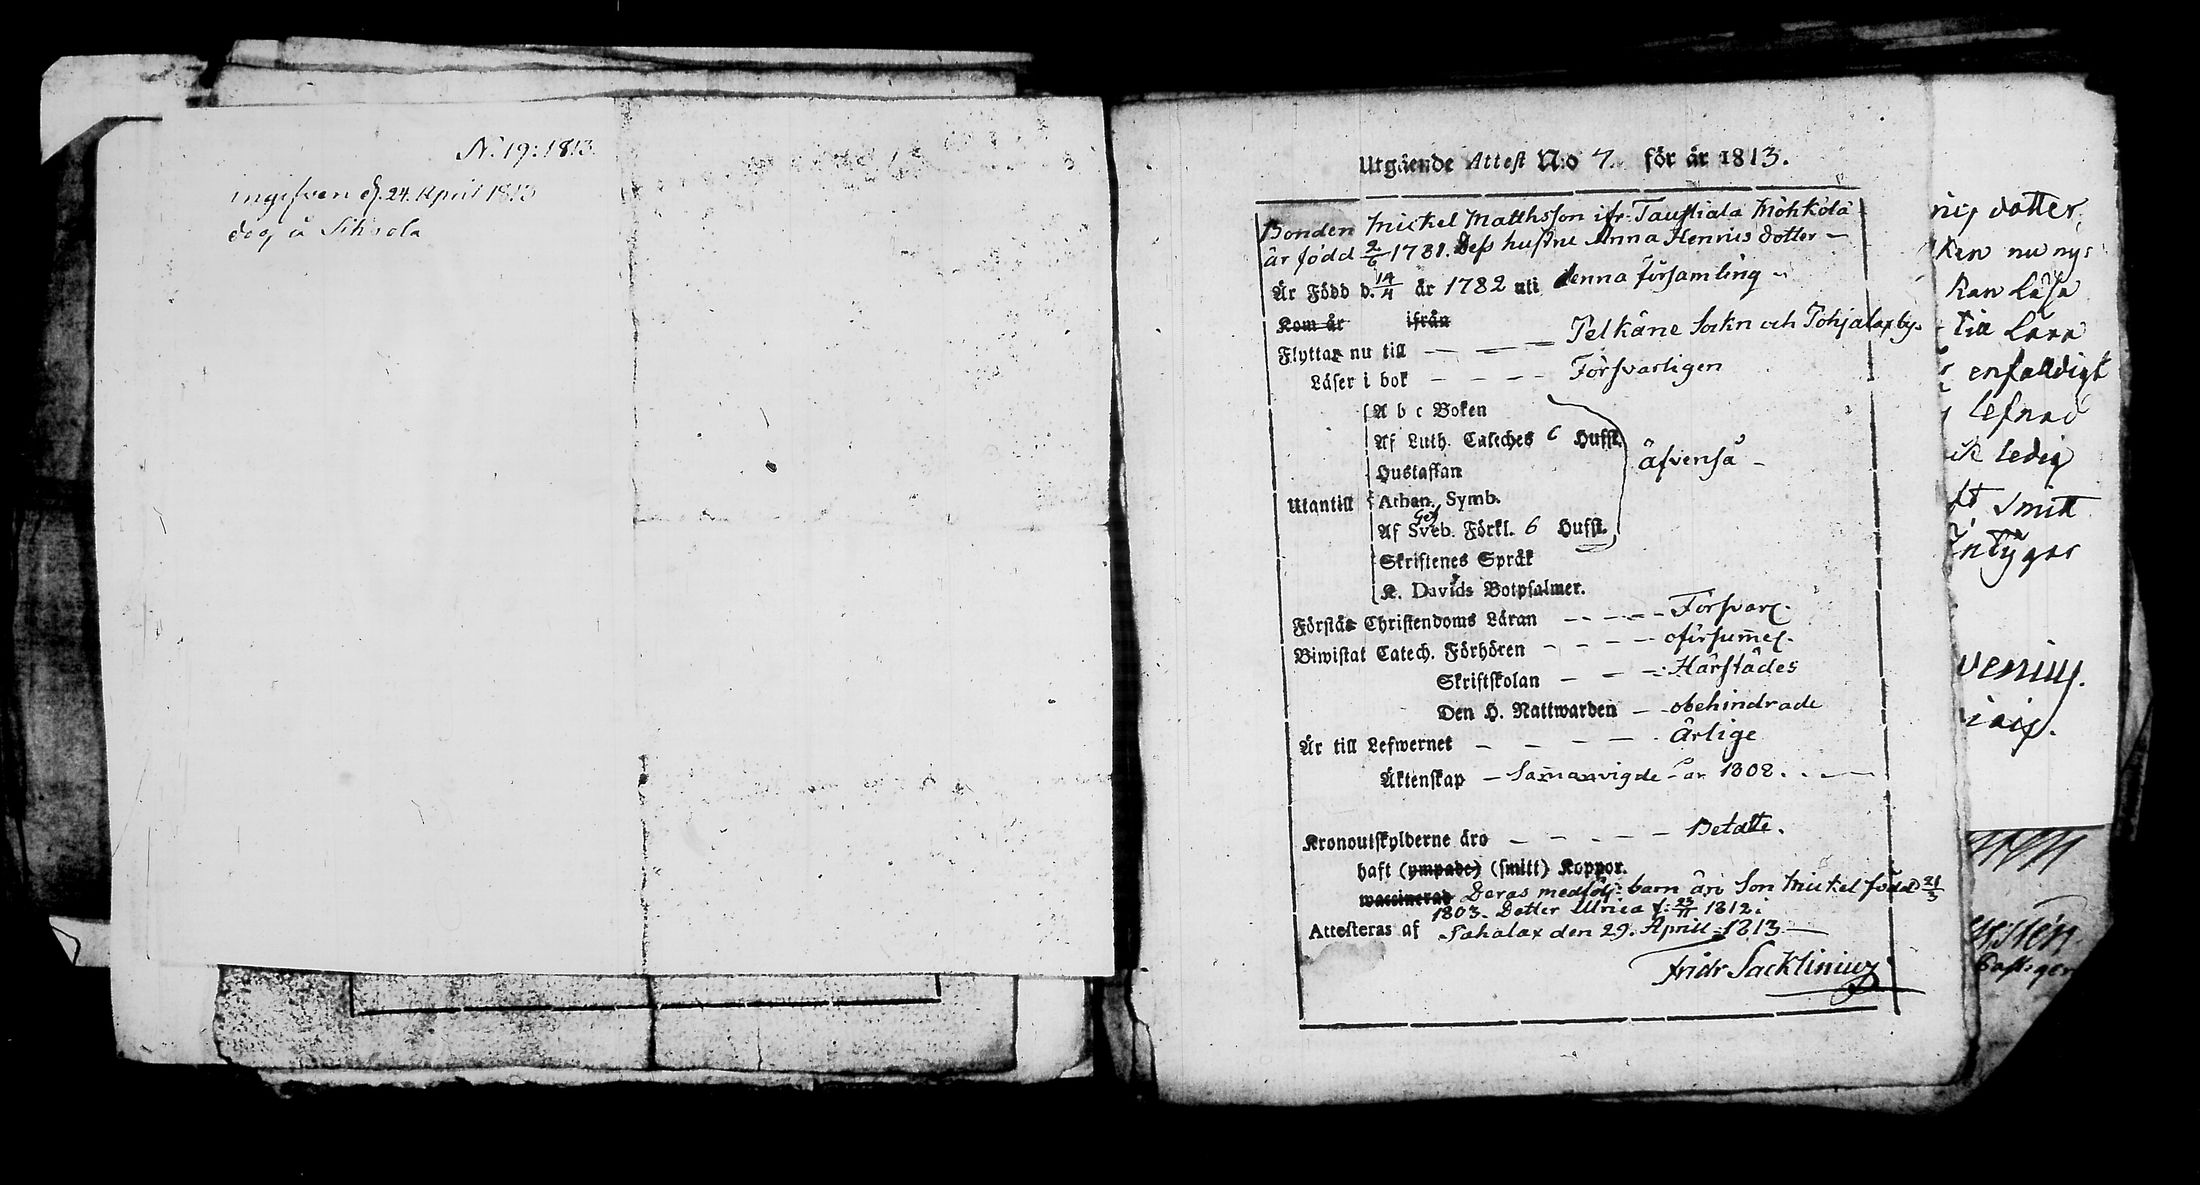 N. 19: 1813.
ingifven d. 24. April 1813
dog å
Utgående Attest N:o 7. för år 1813.
Bonden Mickel Matthsson ifr. Taustiala Möhkölä
är född 2/6 1781. Dess hustru Anna Henrics dotter –
Är Född d. 14/4 år 1782 uti denna församling –
Kom år ifrån
Flyttar nu till – – – Pelkäne Sockn och Pohjalax by.
Läser i bok – – – – Försvarligen
A b c Boken
Af Luth. Cateches 6 Hufst.
Äfvenså –
Hustaflan
Utantill Athan. Symb.
Af Sveb. Förkl. 6 Hufst.
Skriftenes Språk
K. Davids Botpsalmer.
Förstår Christendoms Läran – – – – Försvarl.
Biwistat Catech. Förhören – – – – oförsumel.
Skriftskolan – – – Härstädes
Den H. Nattwarden – obehindrade
Är till Lefwernet – – – – Ärlige
Äktenskap – Samanvigde år 1802. – –
Kronoutskylderne äro – – – – – Betalte.
haft (ympade) (smitt) Koppor.
waccinerad Deras medfölj: barn äro Son Mickel född 21/3
1803. Dotter Ulrica f: 23/11 1812.
Attesteras af Sahalax den 29. April 1813 –
Fridr Sacklinius
dotter
nu nys
kan Läsa
till Lära
enfaldigt
lefnad
ledig
smitt
Intygar